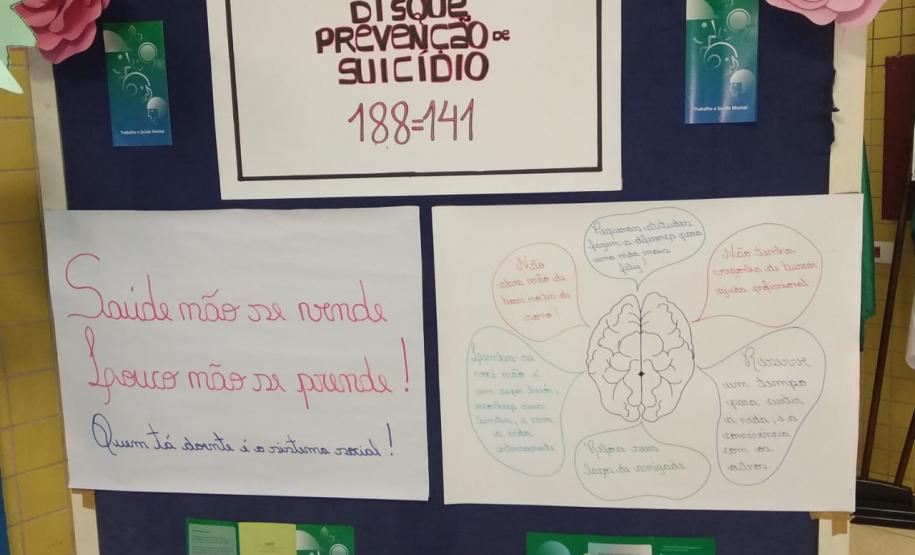 DISQUE
PREVENÇÃO DE
SUICÍDIO
188=141
Trabalho e Saúde Mental
Trabalho e Saúde Mental
Saúde não se vende
Louco não se prende!
Quem tá doente é o sistema social!
Pequenas atitudes
fazem a diferença para
uma vida mais
feliz
Não
abra mão de
boas noites de
sono!
Não tenha
vergonha de buscar
ajuda profissional
Lembre-se
você não é
um super herói,
reconheça seus
limites, e viva
a vida
intensamente
Reserve
um tempo
para curtir
a vida, e a
convivência
com os
outros
Reforce seus
laços de amizade